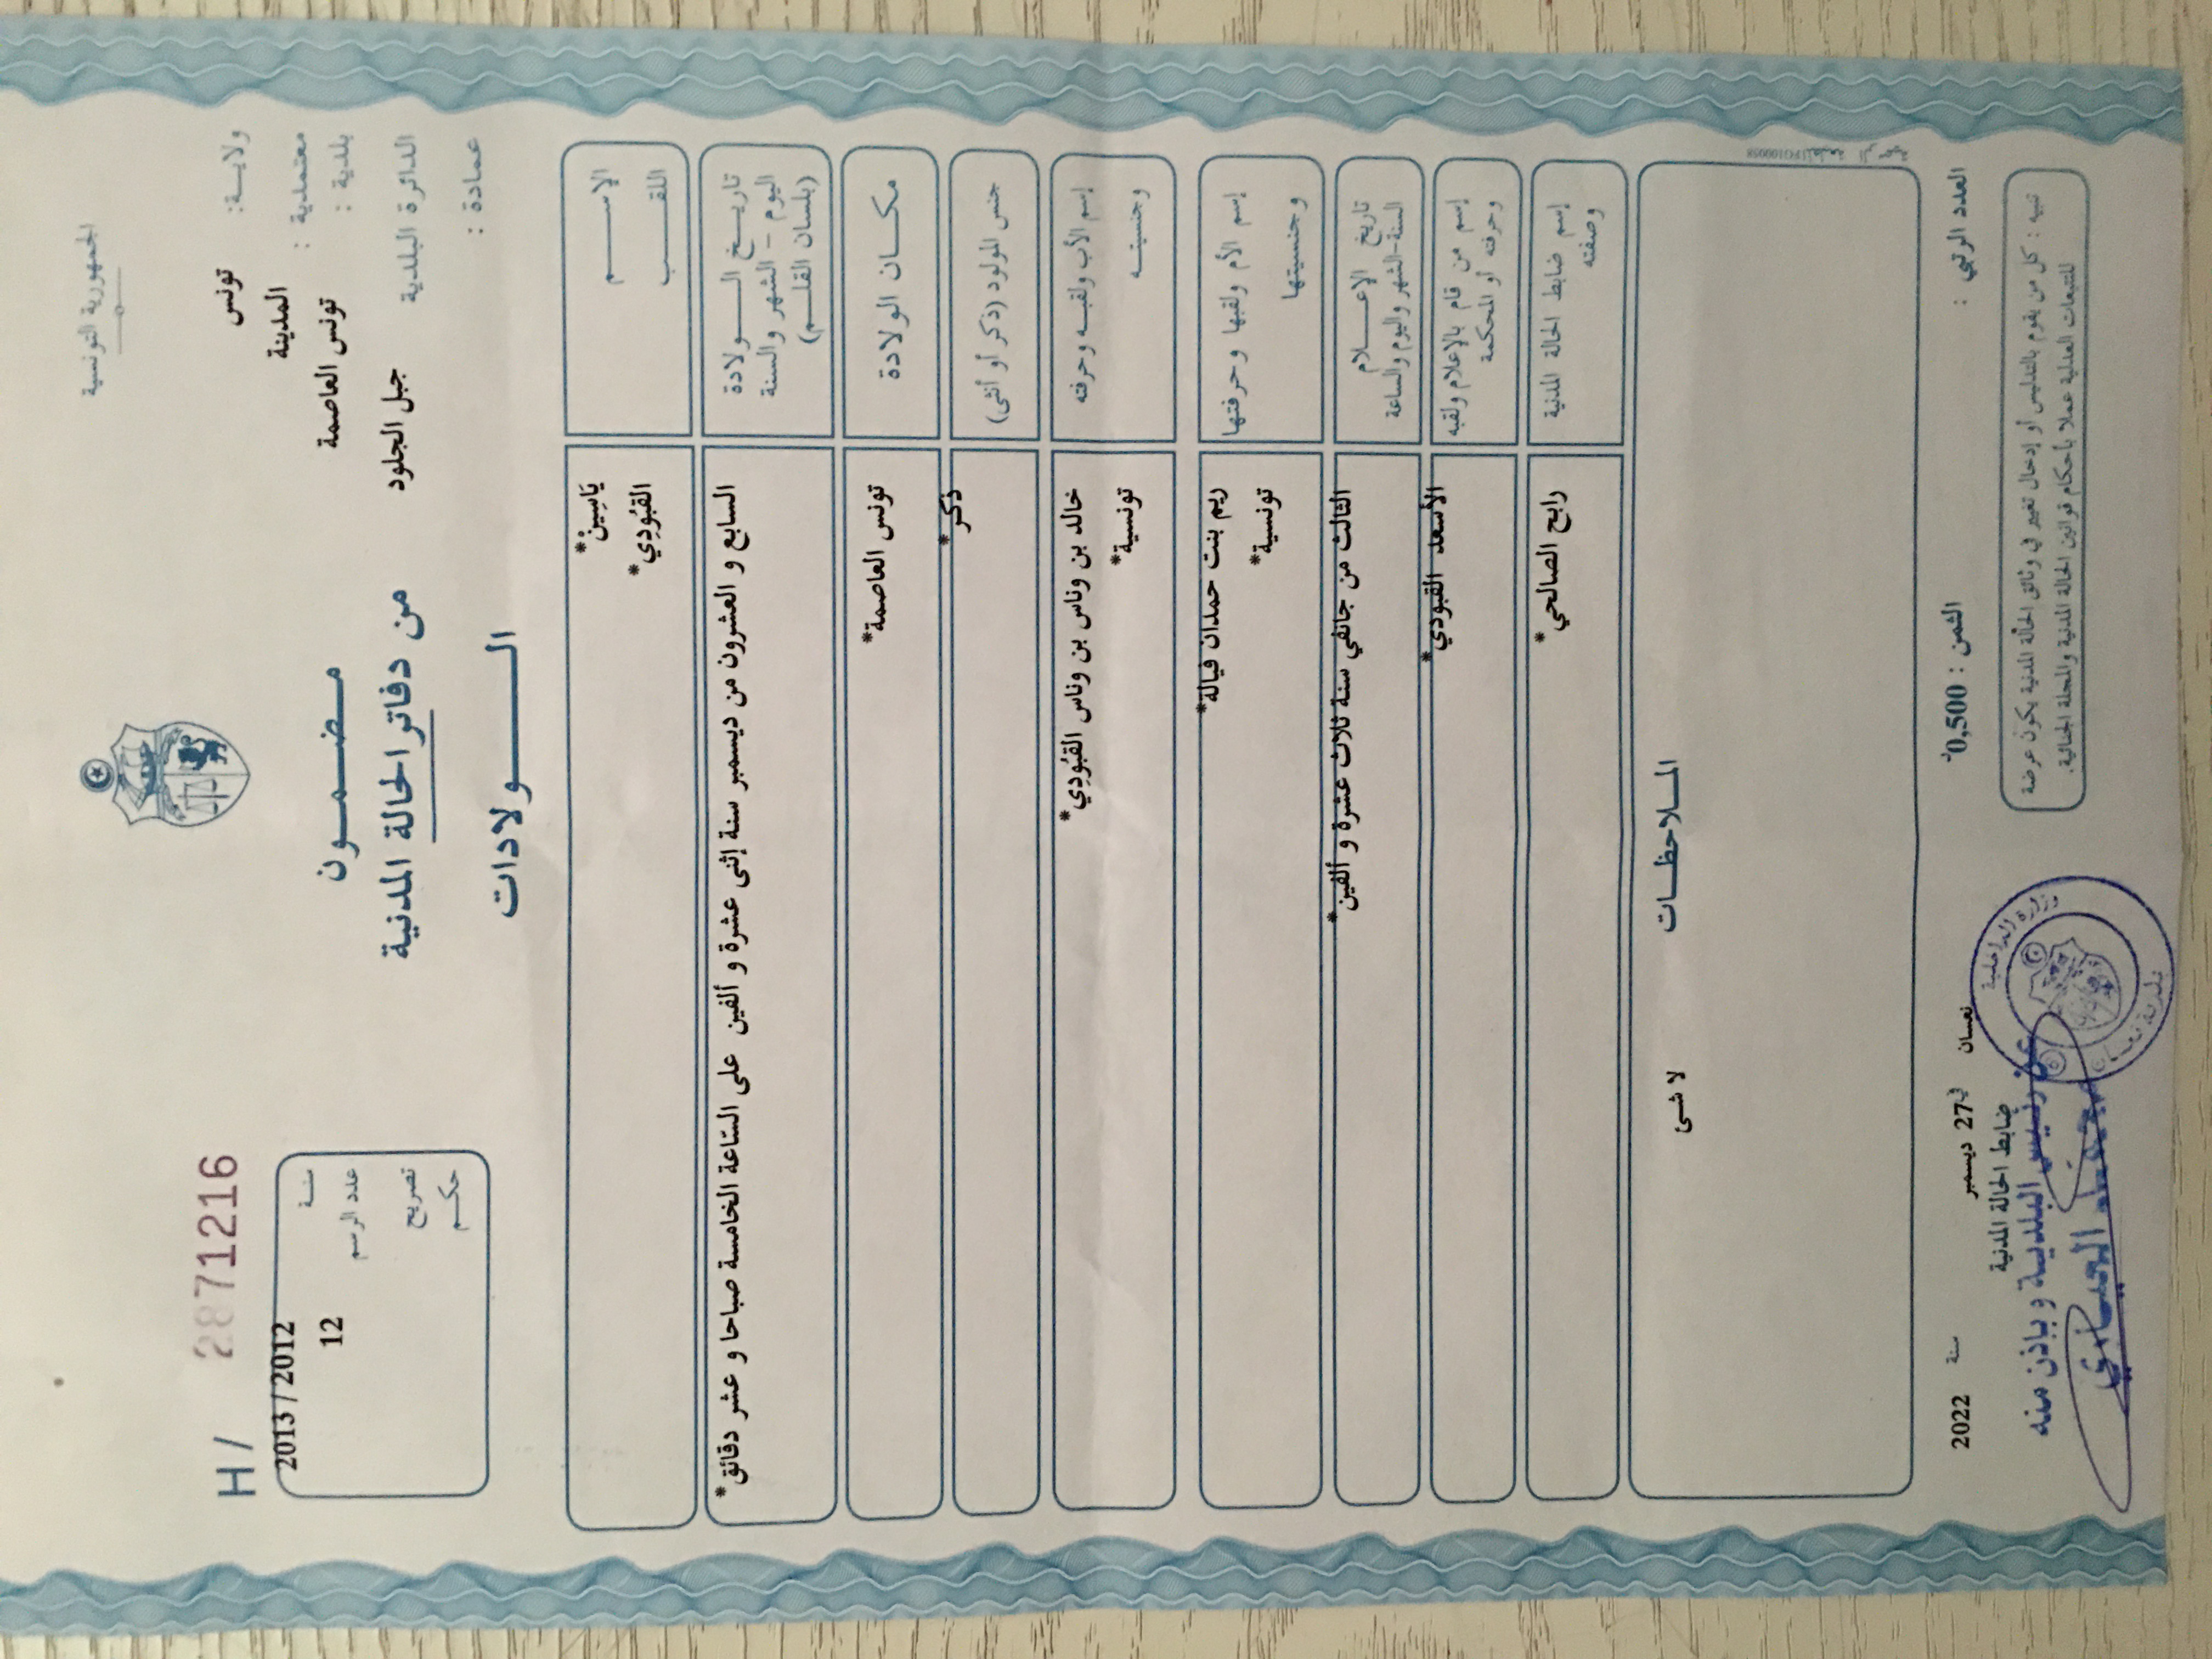 الجمهورية التونسية
ولايـــة: تونس
معتمدية : المدينة
بلدية : تونس العاصمة
الدائرة البلدية جبل الجلود
عمادة :
مـضـمـــون
من دفاتر الحالة المدنية
الـــــولادات
H/ 2871216
سنـة 2013 / 2012
عدد الرسم 12
تصريح
حكـم
الاســـــم يَاسِين*
اللقـــب القبُودِي*
تاريــخ الــــولادة
اليوم - الشهر والسنة
(بلسان القلــم)
السابع و العشرون من ديسمبر سنة إثنى عشرة و ألفين على السّاعة الخامسة صباحا و عشر دقائق*
مكــان الولادة تونس العاصمة*
جنس المولود (ذكر أو أنثى) ذكر*
إسم الأب ولقبـه وحرفته خالد بن وناس بن وناس القبُودِي*
وجنسيتــه تونسية*
إسم الأم ولقبها وحرفتها ريم بنت حمدان فيالة*
وجنسيتها تونسية*
تاريخ الإعـــلام
السنة-الشهر واليوم والساعة
الثالث من جانفي سنة ثلاث عشرة و ألفين*
إسم من قام بالإعلام ولقبه
وحرفته أو المحكمة
الأسعد القبودي*
إسم ضابط الحالة المدنية
وصفته
رابح الصالحي*
المــلاحظــات
لا شئ
العدد الرتبي :
الثمن : 0,500د
نعسان في 27 ديسمبر سنة 2022
ضابط الحالة المدنية
تنبيه : كل من يقوم بالتدليس أو إدخال تغيير في وثائق الحالة المدنية يكون عرضة
للتتبعات العدلية عملا بأحكام قوانين الحالة المدنية والمجلة الجنائية.
عن رئيس البلدية و بإذن منه
وزارة الداخلية
بلدية نعسان